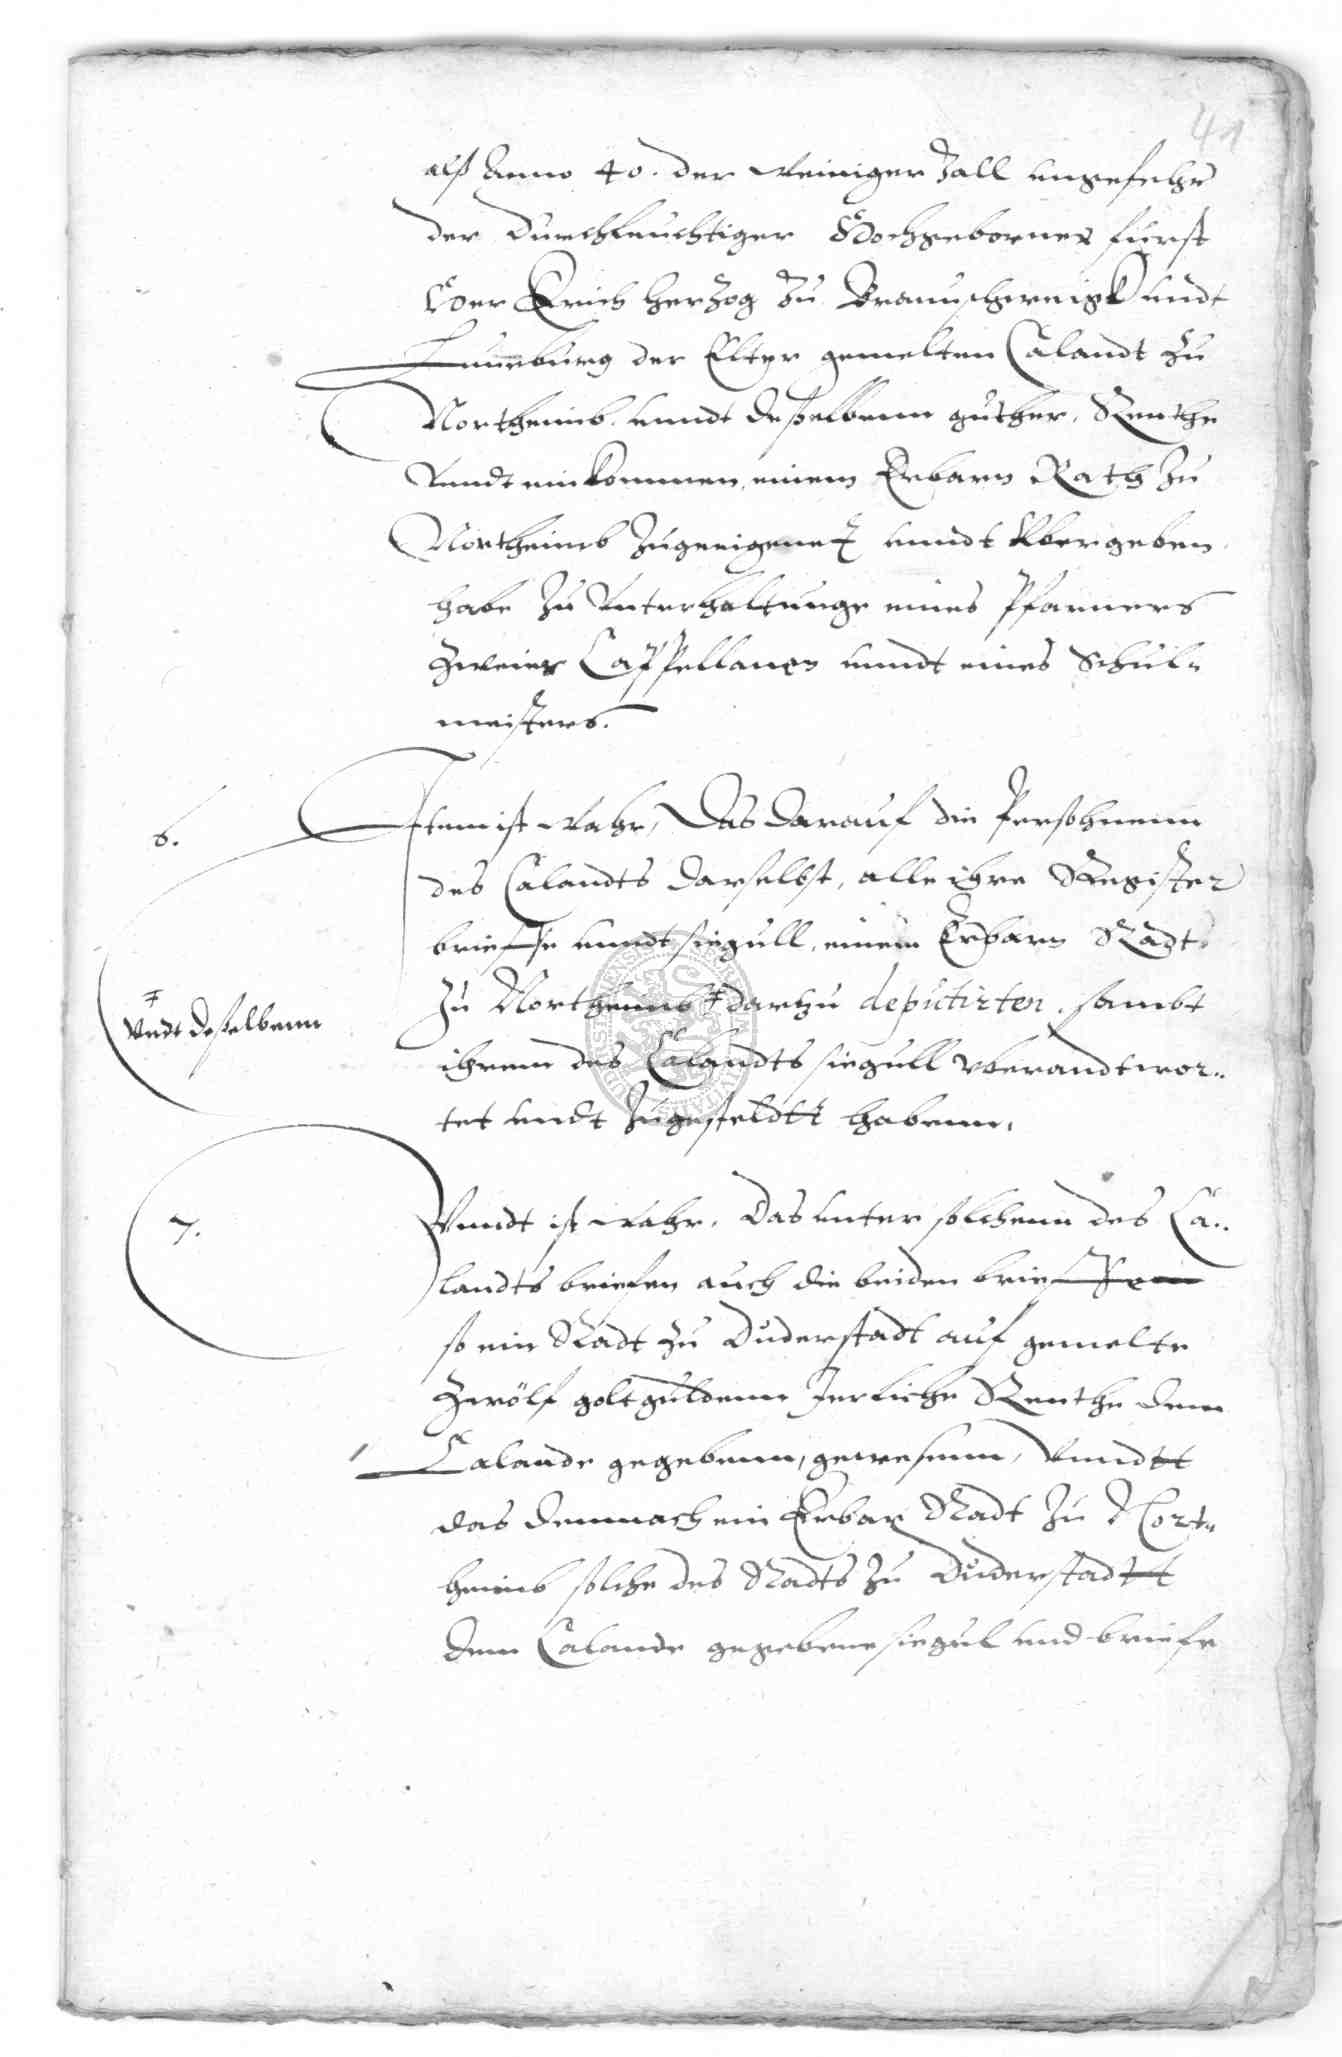 41
alß Anno 40. der weiniger Zall ungefehr
der Durchleuchtiger Hochgeborner furst
Herr Erich Herzog zu Braunschweigk undt
Luneburg der Elter gemelten Calandt zu
Northeimb. unndt deßelbenn guther, Renthe
Unndt einkommen, einem Erbarn Rath zu
Northeimb zugeeigenet unndt Ubergeben
habe zu Unterhaltunge eines Pfarners
zweier Cappellanen unndt eines Schul-
meisters.
6.
Item ist wahr, Das darauf die Persohnenn
des Calandts darselbst, alle ihre Register
brieffe unndt siegull, einem Erbarn Radt
zu Northeimb ‡ dartzu deputirten, sambt
‡
Undt deßelbenn
ihrem des Calandts siegull Uberandtwor-
tet undt zugesteldtt habenn,
7.
Unndt ist wahr, Das unter solchenn des Ca-
landts briefen auch die beiden brieffe
so ein Radt zu Duderstadt auf gemelte
zwölf goltguldenn Jerliche Renthe dem
Calande gegebenn, gewesenn, Unndtt
das demnach ein Erbar Radt zu Nort-
heimb solche des Radts zu Duderstadtt
dem Calande gegebene siegul und briefe